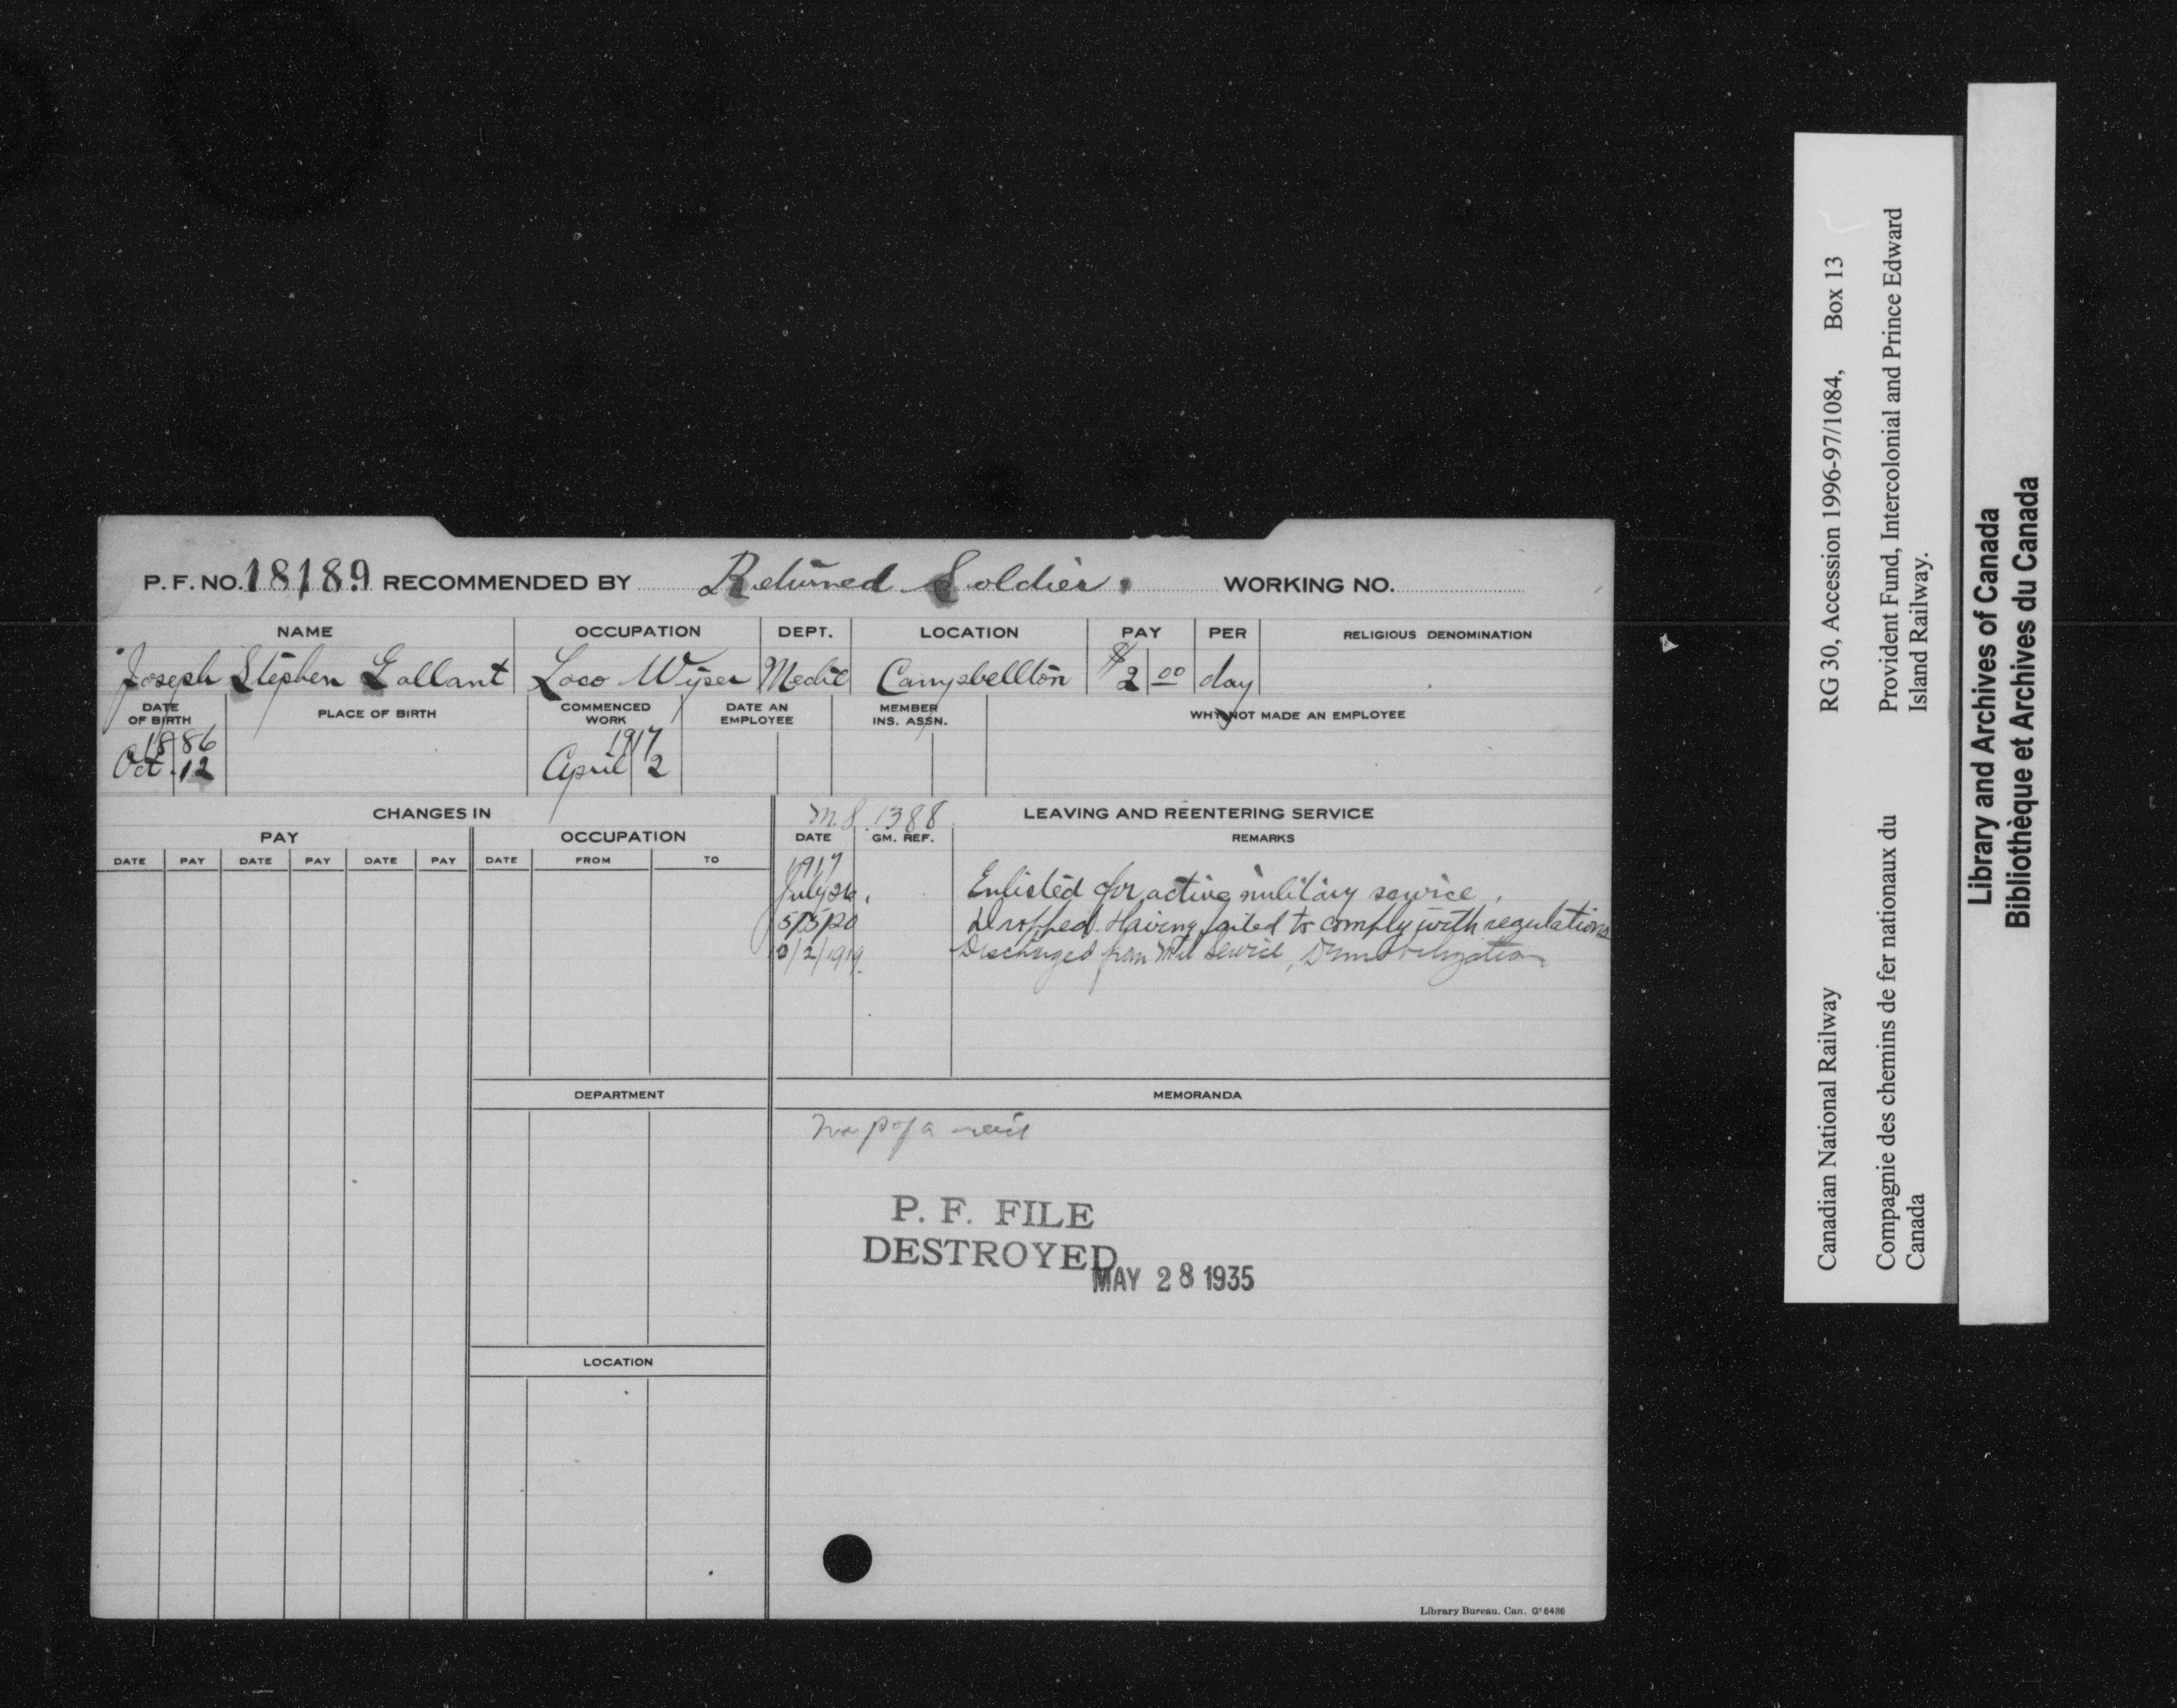 P. F. NO. 18189 RECOMMENDED BY Returned Soldier. WORKING NO.
NAME OCCUPATION DEPT. LOCATION PAY PER RELIGIOUS DENOMINATION
Joseph Stephen Gallant Loco Wiper Mech Campbellton $2 00 day
DATE OF BIRTH PLACE OF BIRTH COMMENCED WORK DATE AN EMPLOYEE MEMBER INS. ASSN. WHY NOT MADE AN EMPLOYEE
1886 1917
Oct. 12 April 2
CHANGES IN M.S. 1388 LEAVING AND REENTERING SERVICE
PAY OCCUPATION DATE GM. REF. REMARKS
DATE PAY DATE PAY DATE PAY DATE FROM TO
1917
July 26. Enlisted for active military service.
5/5/20 Dropped. Having failed to comply with regulations
/2/1919. Discharged from Mil Service, Demobilization
DEPARTMENT MEMORANDA
P. F. FILE
DESTROYED
MAY 28 1935
LOCATION
Library Bureau. Can. G16486
Canadian National Railway RG 30, Accession 1996-97/1084, Box 13
Compagnie des chemins de fer nationaux du Provident Fund, Intercolonial and Prince Edward
Canada Island Railway.
Library and Archives of Canada
Bibliothèque et Archives du Canada